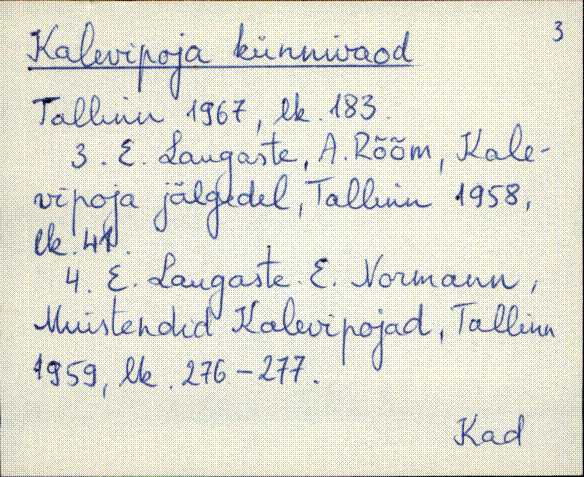 3
Kalevipoja künnivaod
Tallinn 1967, lk. 183.
3. E. Laugaste, A. Rõõm, Kale-
vipoja jälgedel, Tallinn 1958,
lk. 41.
4. E. Laugaste. E. Normann,
Muistendid Kalevipojad, Tallinn
1959, lk. 276-277.
Kad